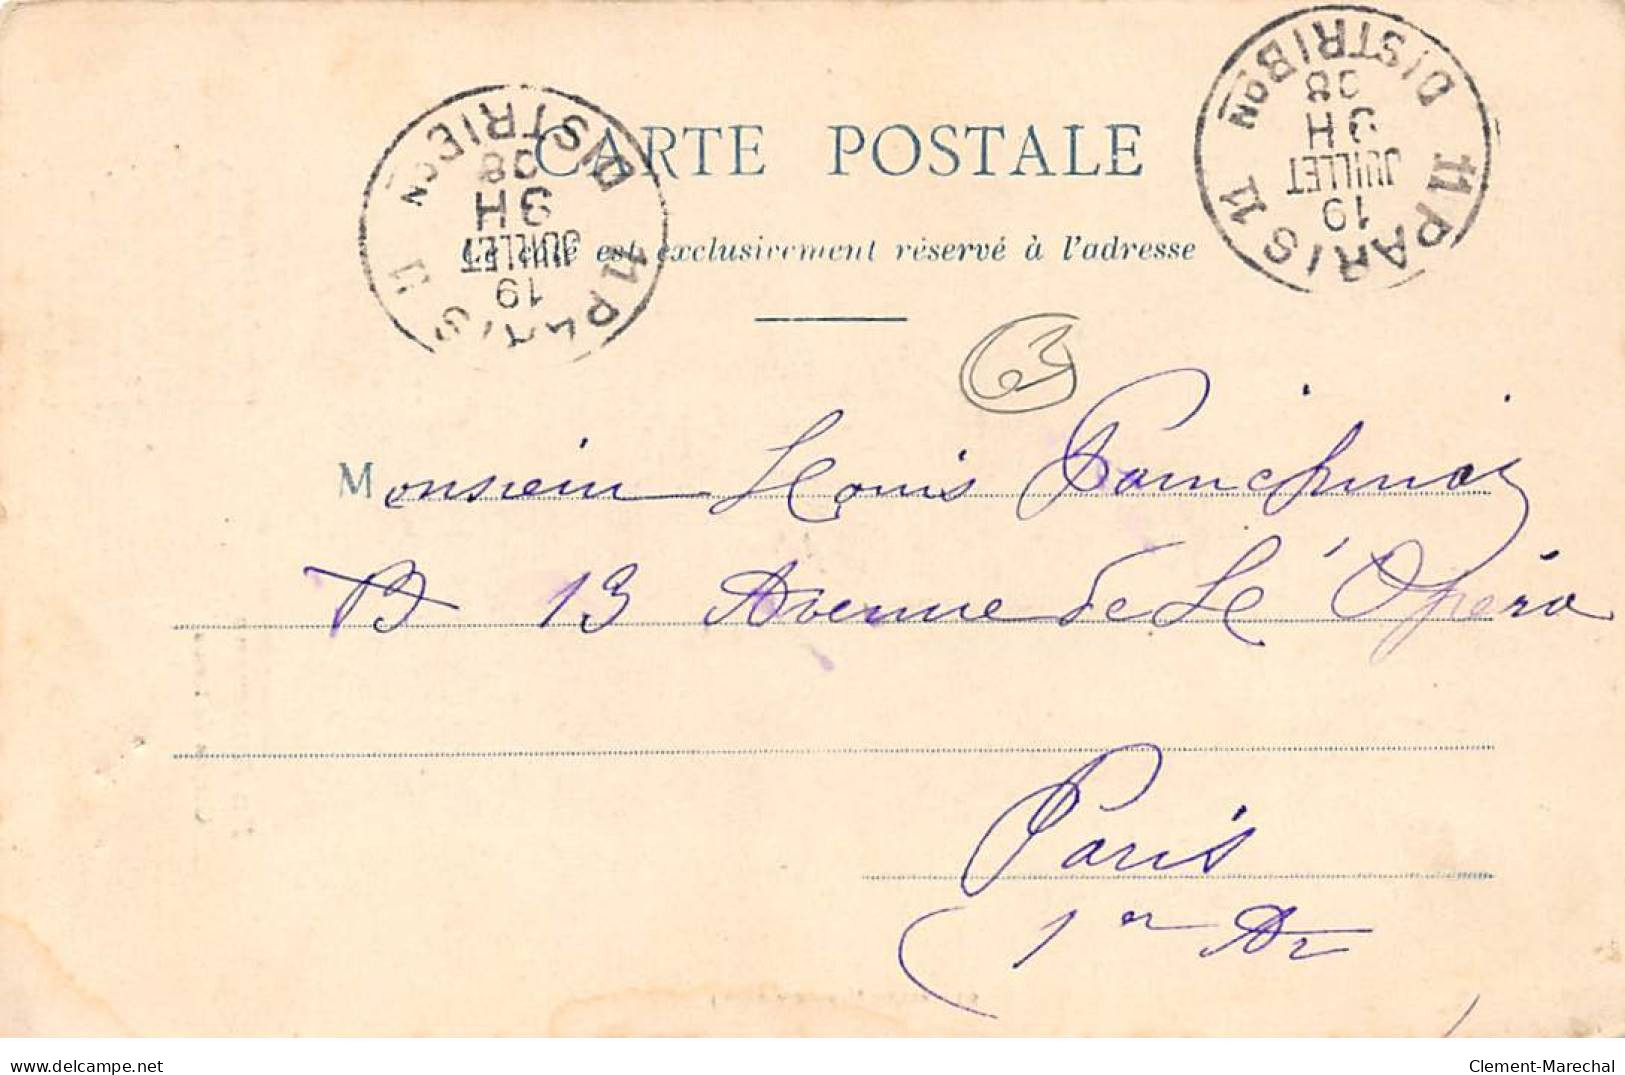 CARTE POSTALE
Ce côté est exclusivement réservé à l'adresse
11 PARIS 11 DISTRIBON
19
JUILLET
9H
11 PARIS 11 DISTRIBON
19
JUILLET
9H
63
Monsieur Louis
B 13 Avenue de Le' Opéra
Paris
1er Ar
www.delcampe.net
Clement-Marechal